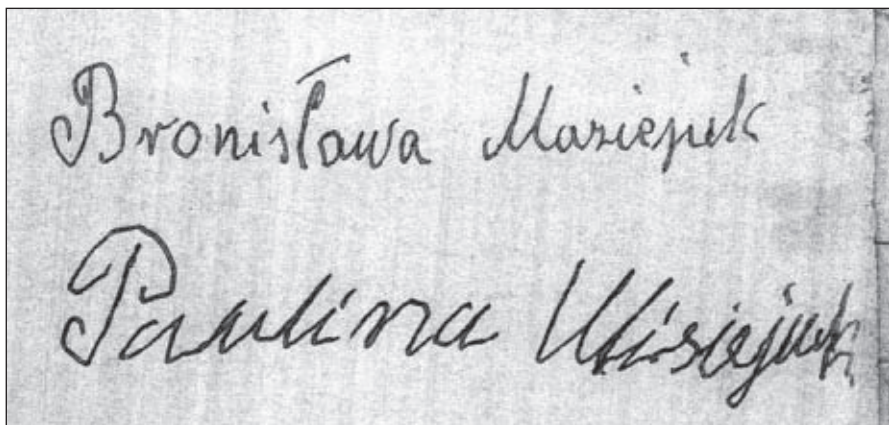 Bronisława Maziejuk
Paulina Misiejuk